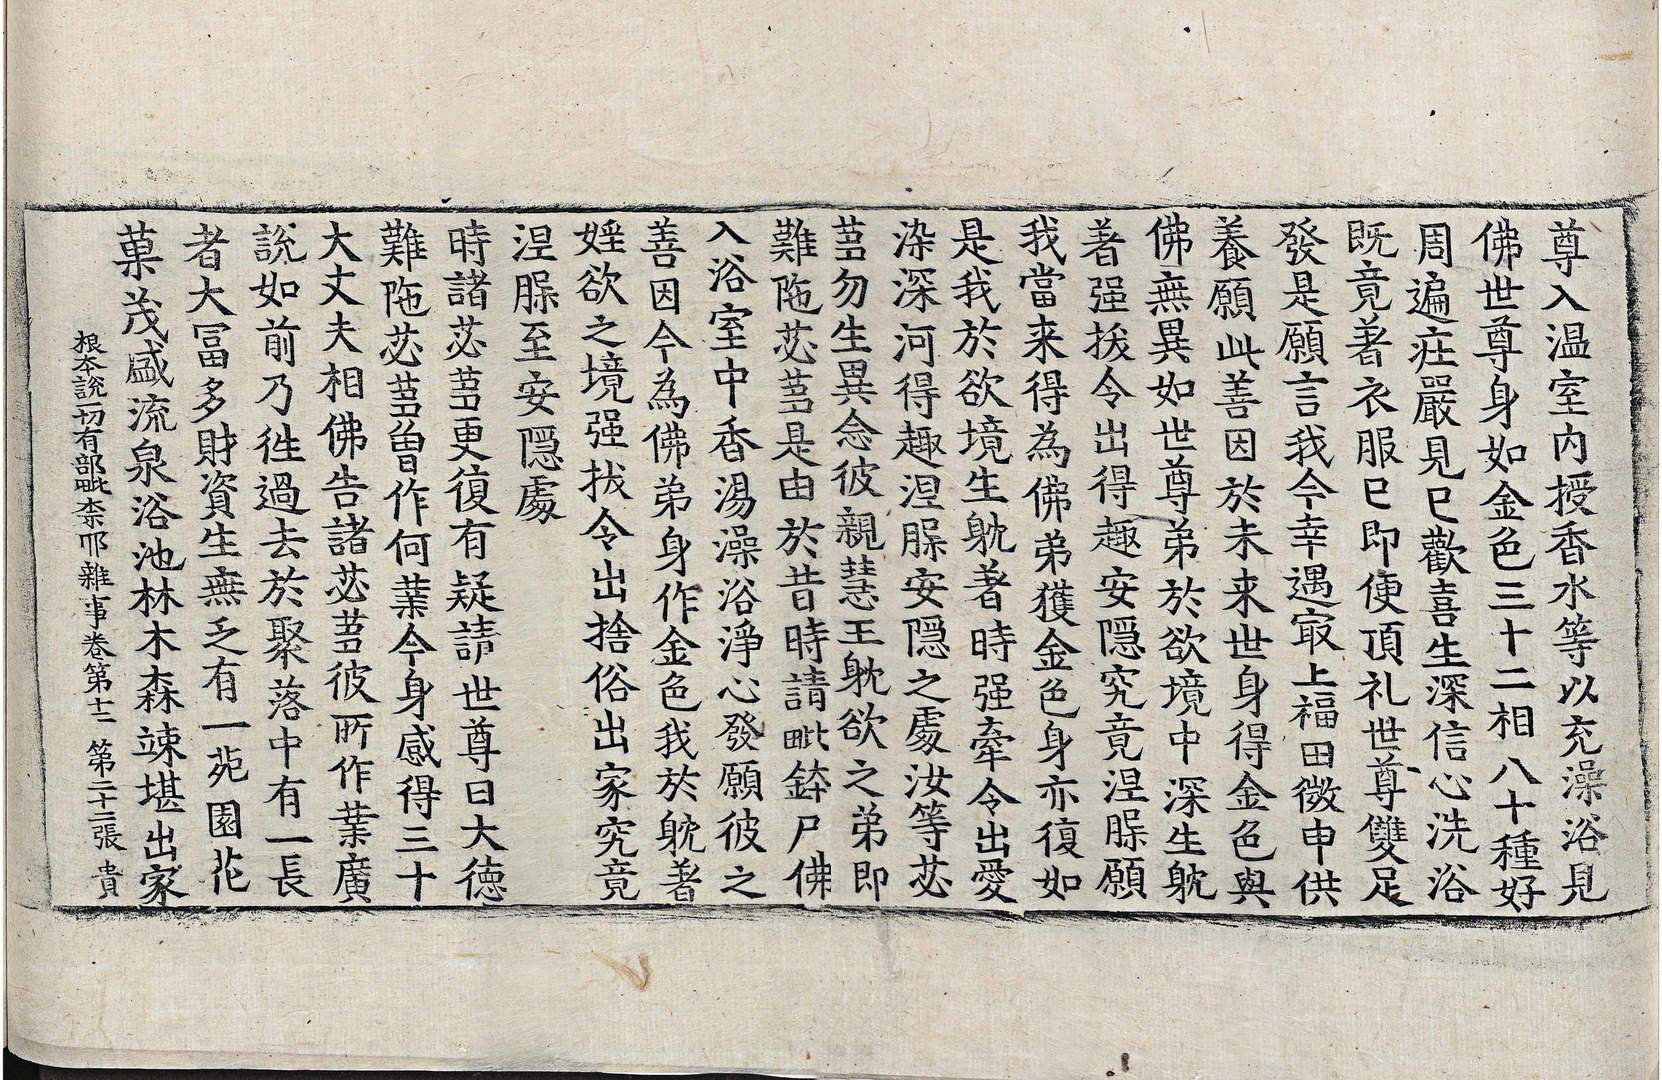 尊入温室内授香水等以充澡浴見
佛世尊身如金色三十二相八十種好
周遍庄嚴見已歡喜生深信心洗浴
既竟著衣服已即便頂礼世尊雙足
發是願言我今幸遇㝡上福田微申供
養願此善因於未来世身得金色與
佛無異如世尊弟於欲境中深生躭
著强拔令出得趣安隠究竟涅𦛨願
我當来得為佛弟獲金色身亦復如
是我於欲境生躭著時强牽令出愛
染深河得趣涅𦛨安隠之處汝等苾
芻勿生異念彼親慧王躭欲之弟即
難陁苾芻是由於昔時請毗鉢尸佛
入浴室中香湯澡浴淨心發願彼之
善因今為佛弟身作金色我於躭著
婬欲之境强拔令出捨俗出家究竟
涅𦛨至安隠處
時諸苾芻更復有疑請世尊曰大德
難陁苾芻曾作何業今身感得三十
大丈夫相佛告諸苾芻彼所作業廣
說如前乃徃過去於聚落中有一長
者大冨多財資生無乏有一菀園花
菓茂盛流泉浴池林木森竦堪出家
根本說一切有部毗柰耶雜事卷第十二 第二十二張 貴